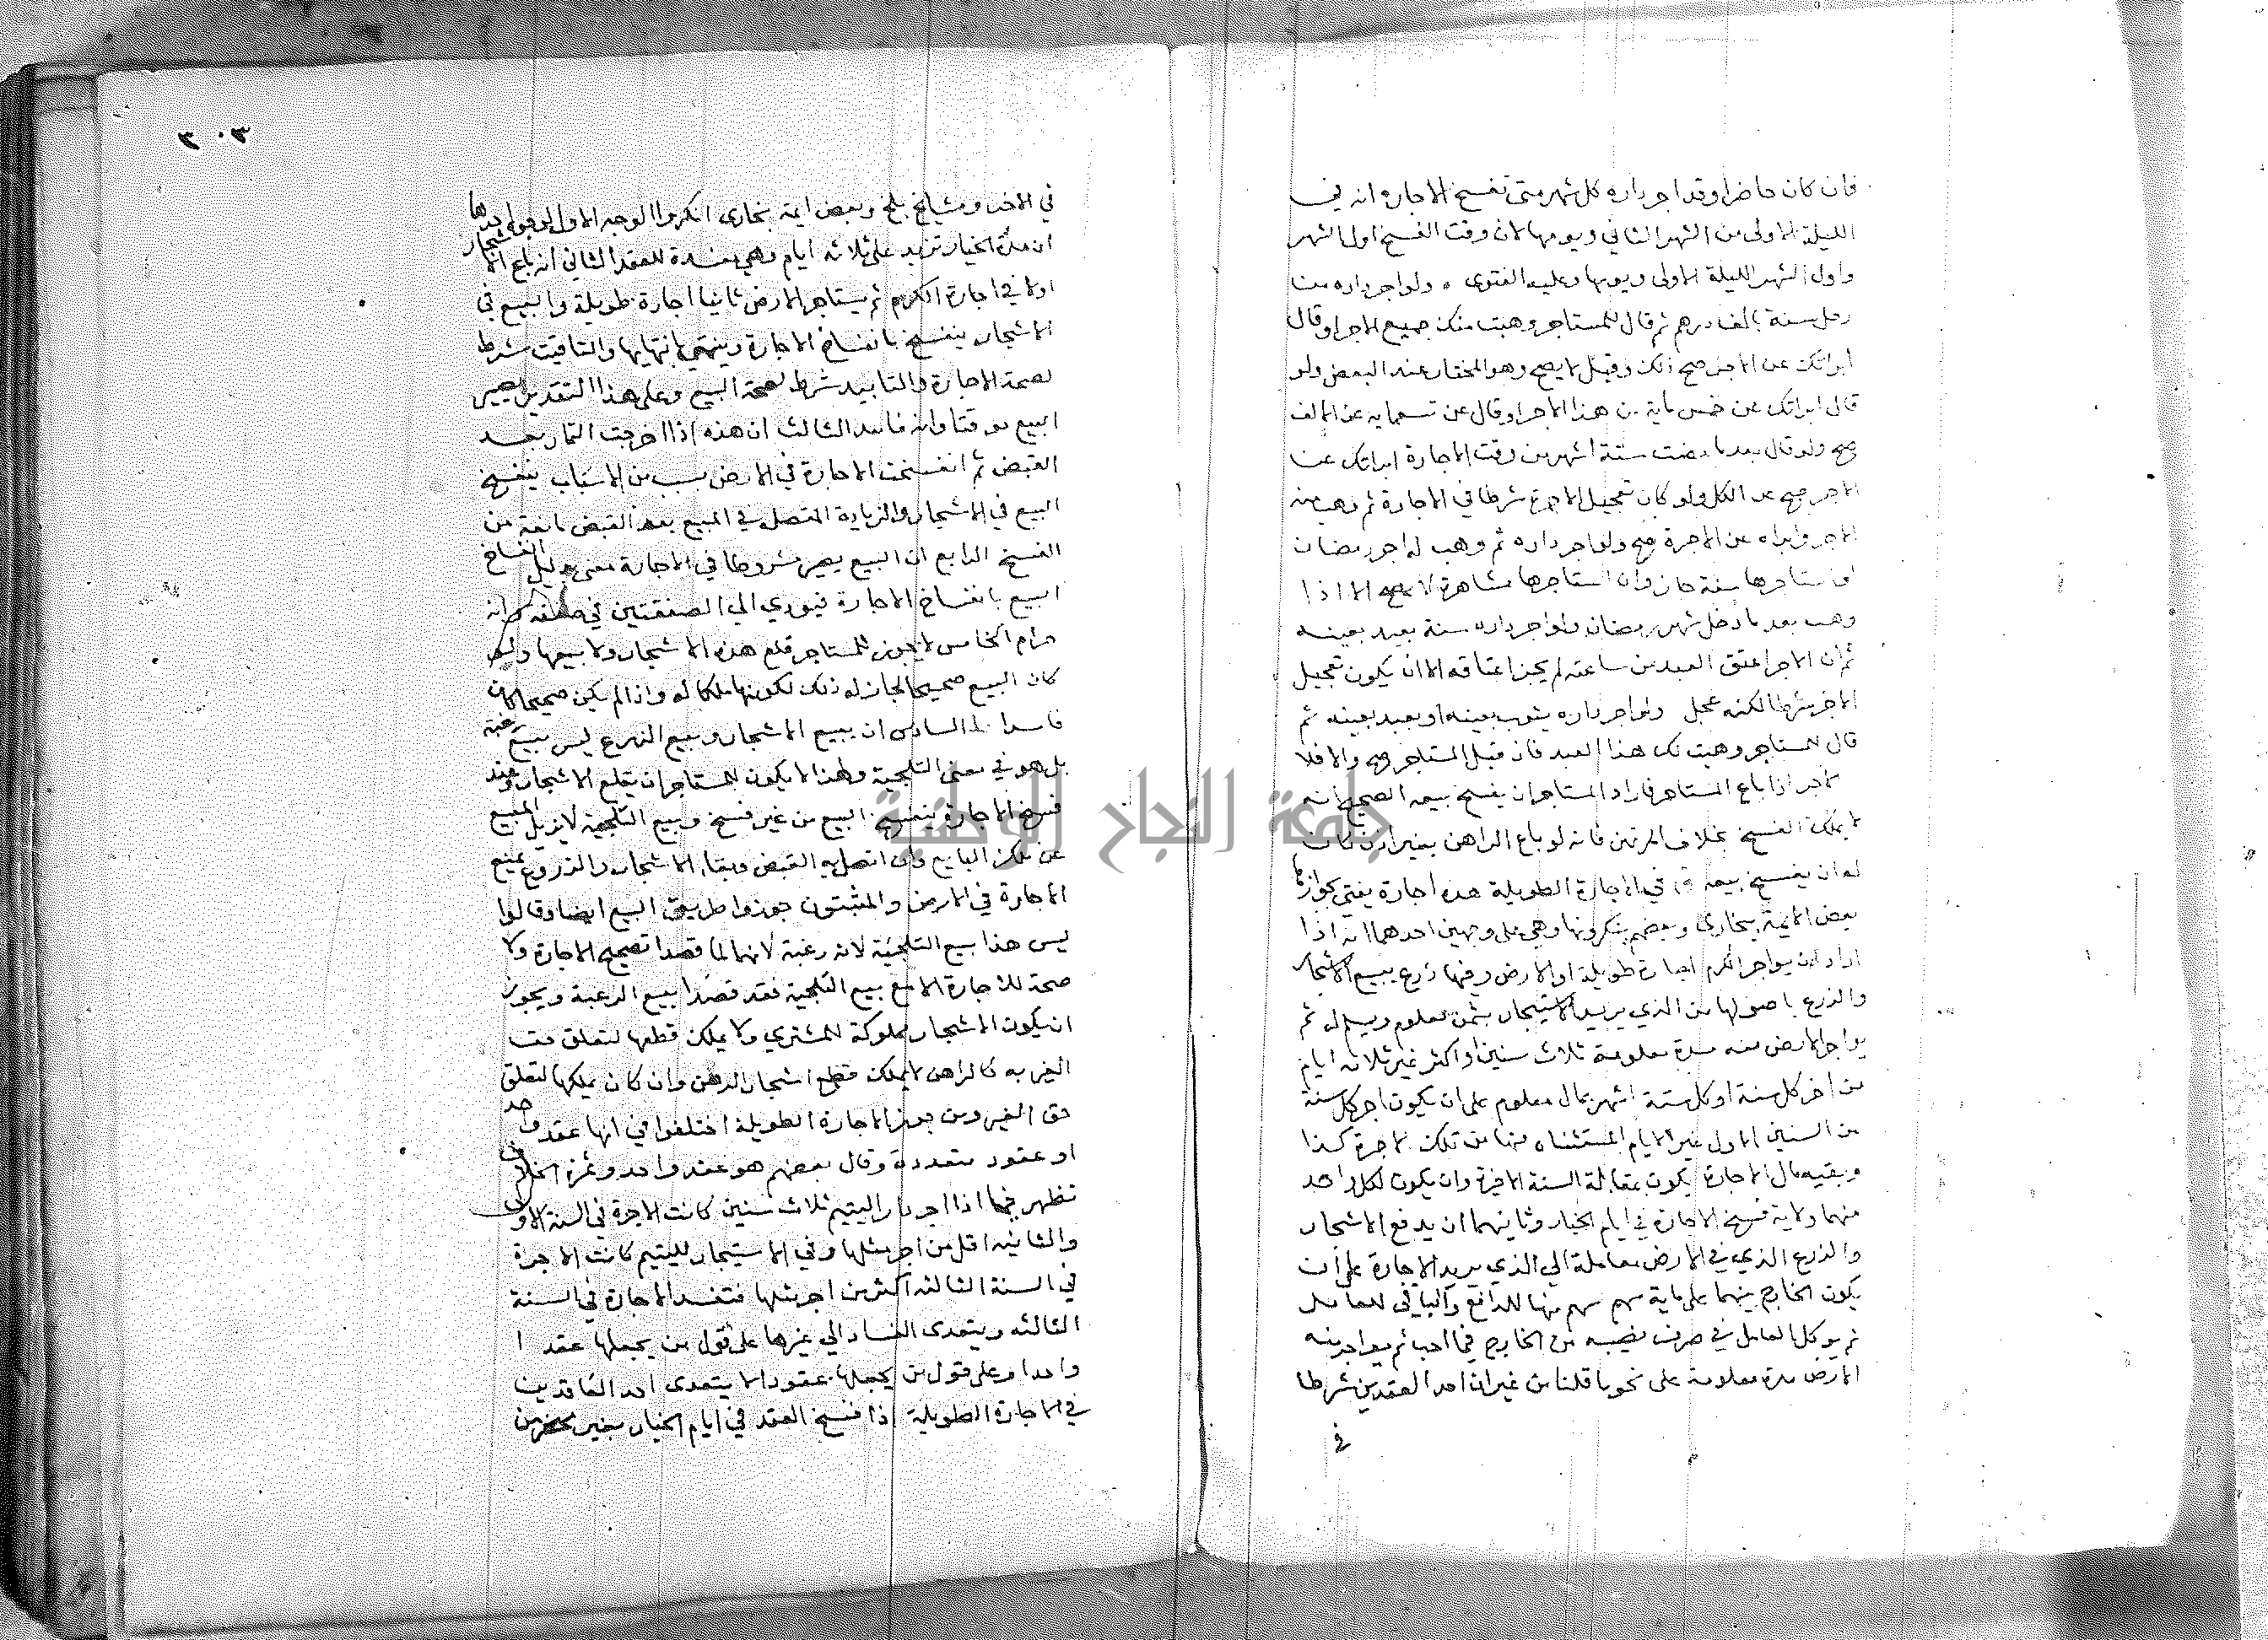 فان كان حاضرا وقد اجر داره كل شهر متى تفسخ الاجارة انه في
الليلة الاولى من الشهر الثاني ويومها لان وقت الفسخ اول الشهر
واول الشهر الليلة الاولى ويومها وعليه الفتوى ولو اجر داره من
رجل سنة بالف درهم ثم قال للمستاجر وهبت منك جميع الاجر او قال
ابراتك عن الاجر صح ذلك وقيل لا يصح وهو المختار عند البعض ولو
قال ابراتك عن خمس ماية من هذا الاجر او قال عن تسعماية عن الالف
صح ولو قال بعد ما مضت ستة اشهر من وقت الاجارة ابراتك عن
الاجر صح عن الكل ولو كان تعجيل الاجرة شرطا في الاجارة ثم وهب منه
الاجر وابراه عن الاجرة صح ولو اجر داره ثم وهب له اجر رمضان
ان استاجرها سنة جاز وان استاجرها مشاهرة لا يصح الا اذا
وهب بعد ما دخل شهر رمضان ولو اجر داره سنة بعبد بعينه
ثم ان الاجر اعتق العبد من ساعته لم يجز اعتاقه الا ان يكون تعجيل
الاجر شرطا لكنه عجل ولو اجر داره بثوب بعينه او بعبد بعينه ثم
قال للمستاجر وهبت لك هذا العبد فان قبل المستاجر صح والا فلا
الاجر اذا باع المستاجر فاراد المستاجر ان يفسخ بيعه الصحيح انه
لا يملك الفسخ بخلاف المرتهن فانه لو باع الراهن بغير اذن كان
له ان يفسخ بيعه في الاجارة الطويلة هذه اجارة يفتي بجوازها
بعض الايمة ببخارى وبعضهم ينكرونها وهي على وجهين احدهما انه اذا
اراد ان يواجر الكرم اجارة طويلة او الارض وفيها زرع يبيع الاشجار
والزرع باصولها من الذي يريد الاستيجار بثمن معلوم ويسلم له ثم
يواجر الارض منه مدة معلومة ثلاث سنين او اكثر غير ثلاثة ايام
من اخر كل سنة او كل ستة اشهر بمال معلوم على ان يكون اجر كل سنة
من السنين الاول غير الايام المستثناه منها من تلك الاجرة كذا
وبقيه مال الاجارة يكون بمقابلة السنة الاخيرة وان يكون لكل واحد
منهما ولاية فسخ الاجارة في ايام الخيار وثانيهما ان يدفع الاشجار
والزرع الذي في الارض معاملة الى الذي يريد الاجارة على ان
يكون الخارج بينهما على ماية سهم سهم منها للدافع والباقي للعامل
ثم يوكل العامل في صرف نصيبه من الخارج فيما احب ثم يواجر منه
الارض مدة معلومة على نحو ما قلنا من غير ان احد العقدين شرطا
في
٣٠٣
في الاخر ومشايخ بلخ وبعض ايمة بخارى انكروا الوجه الاول لوجوه احدها
ان مدة الخيار تزيد على ثلاثة ايام وهي مفسدة للعقد الثاني انه باع الاشجار
اولا في اجارة الكرم ثم يستاجر الارض ثانيا اجارة طويلة والبيع في
الاشجار ينفسخ بانفساخ الاجارة وينتهي بانتهايها والتاقيت شرط
لصحة الاجارة والتابيد شرط لصحة البيع وعلى هذا التقدير يصير
البيع موقتا وانه فاسد الثالث ان هذه اذا اخرجت الثمار بعد
القبض ثم انفسخت الاجارة في الارض بسبب من الاسباب ينفسخ
البيع في الاشجار والزيادة المتصلة في المبيع بعد القبض مانعة من
الفسخ الرابع ان البيع يصير مشروطا في الاجارة معنى بدليل انفساخ
البيع بانفساخ الاجارة فيودي الى الصفقتين في صفقه وانه
حرام الخامس لا يجوز للمستاجر قلع هذه الاشجار ولا بيعها ولو
كان البيع صحيحا لجاز له ذلك لكونها ملكا له واذا لم يكن صحيحا كان
فاسدا السادس ان بيع الاشجار وبيع الزرع ليس ببيع رغبة
بل هو في معنى التلجية ولهذا لا يكون للمستاجر ان يقلع الاشجار وعند
فسخ الاجارة ينفسخ البيع من غير فسخ وبيع التلجية لا يزيل المبيع
عن ملك البايع وان اتصل به القبض وبقاء الاشجار والزروع يمنع
الاجارة في الارض والمثبتون جوزوا طريق البيع ايضا وقالوا
ليس هذا بيع التلجية لانه رغبة لانهما لما قصدا تصحيح الاجارة ولا
صحة للاجارة الا مع بيع التلجية فقد قصدا بيع الرغبة ويجوز
ان يكون الاشجار مملوكة للمشتري ولا يملك قطعها لتعلق حق
الغير به كالراهن لا يملك قطع اشجار الرهن وان كان يملكها لتعلق
حق الغير ومن جوز الاجارة الطويلة اختلفوا في انها عقد واحد
او عقود متعددة وقال بعضهم هو عقد واحد وثمرة الخلاف
تظهر فيما اذا اجر دار اليتيم ثلاث سنين كانت الاجرة في السنة الاولى
والثانية اقل من اجر مثلها وفي الاستيجار لليتيم كانت الاجرة
في السنة الثالثه اكثر من اجر مثلها فتفسد الاجارة في السنة
الثالثه ويتعدى الفساد الى غيرها على قول من يجعلها عقدا
واحدا وعلى قول من يجعلها عقودا لا يتعدى احد العاقدين
في الاجارة الطويلة اذا فسخ العقد في ايام الخيار بغير محضر من
جامعة النجاح الوطنية